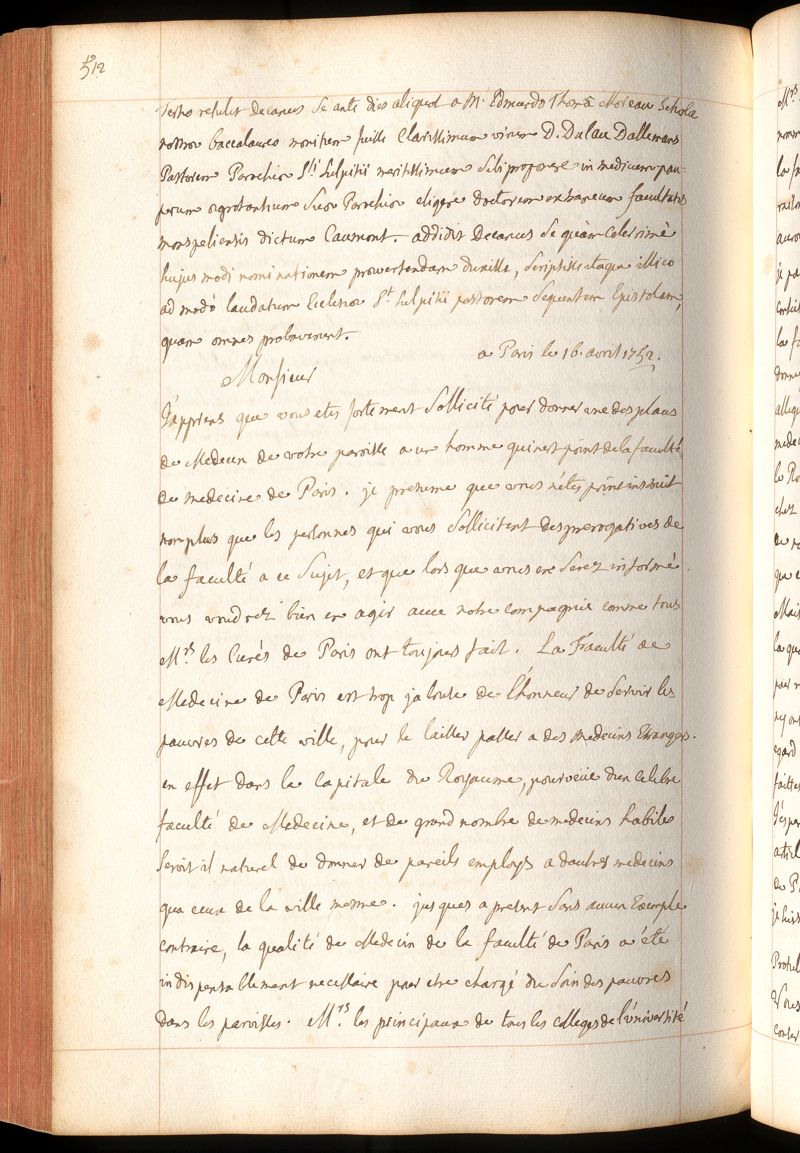 512
Tertio retulit Decanus Se ante dies aliquot a M. Edmundo Thoma Moreau Scholæ
nostræ baccalaureo monitum fuisse Clarissimum virum D. Dulau Dallemans
Pastorem Parochiæ Sti Sulpitii meritissimum Sibi proponere in medicum pau-
perum ægrotantium Suæ Parochiæ eligere doctorem extraneum facultatis
monspeliensis dictum Caumont. addidit Decanus Se quàm Celerrimè
hujus modi nominationem prævertendam duxisse, Scripsisse itaque illico
ad modò laudatum Ecclesiæ Sti Sulpitii pastorem Sequentem Epistolam,
quam omnes probaverunt.
a Paris le 16. avril 1752.
Monsieur
J'apprens que vous etes fortement Sollicité pour donner une des places
de Medecin de votre paroisse a un homme qui n'est point de la faculté
de medecine de Paris. je presume que vous n'êtes point instruit
non plus que les personnes qui vous Sollicitent des prerogatives de
la faculté a ce Sujet, et que lors que vous en Serez informé
vous voudrez bien en agir avec notre compagnie comme tous
Mrs les Curés de Paris ont toujours fait. La Faculté de
Medecine de Paris est trop jalouse de l'honneur de Servir les
pauvres de cette ville, pour le laisser passer a des medecins Etrangers.
en effet dans la Capitale du Royaume, pourveüe d'un celebre
faculté de Medecine, et de grand nombre de medecins habiles
Seroit il naturel de donner de pareils employs a dautres medecins
qua ceux de la ville mesme. jusques a present Sans aucun Exemple
contraire, la qualité de Medecin de la faculté de Paris a été
indispensablement necessaire pour etre chargé du Soin des pauvres
dans les paroisses. Mrs les principaux de tous les colleges de l'université